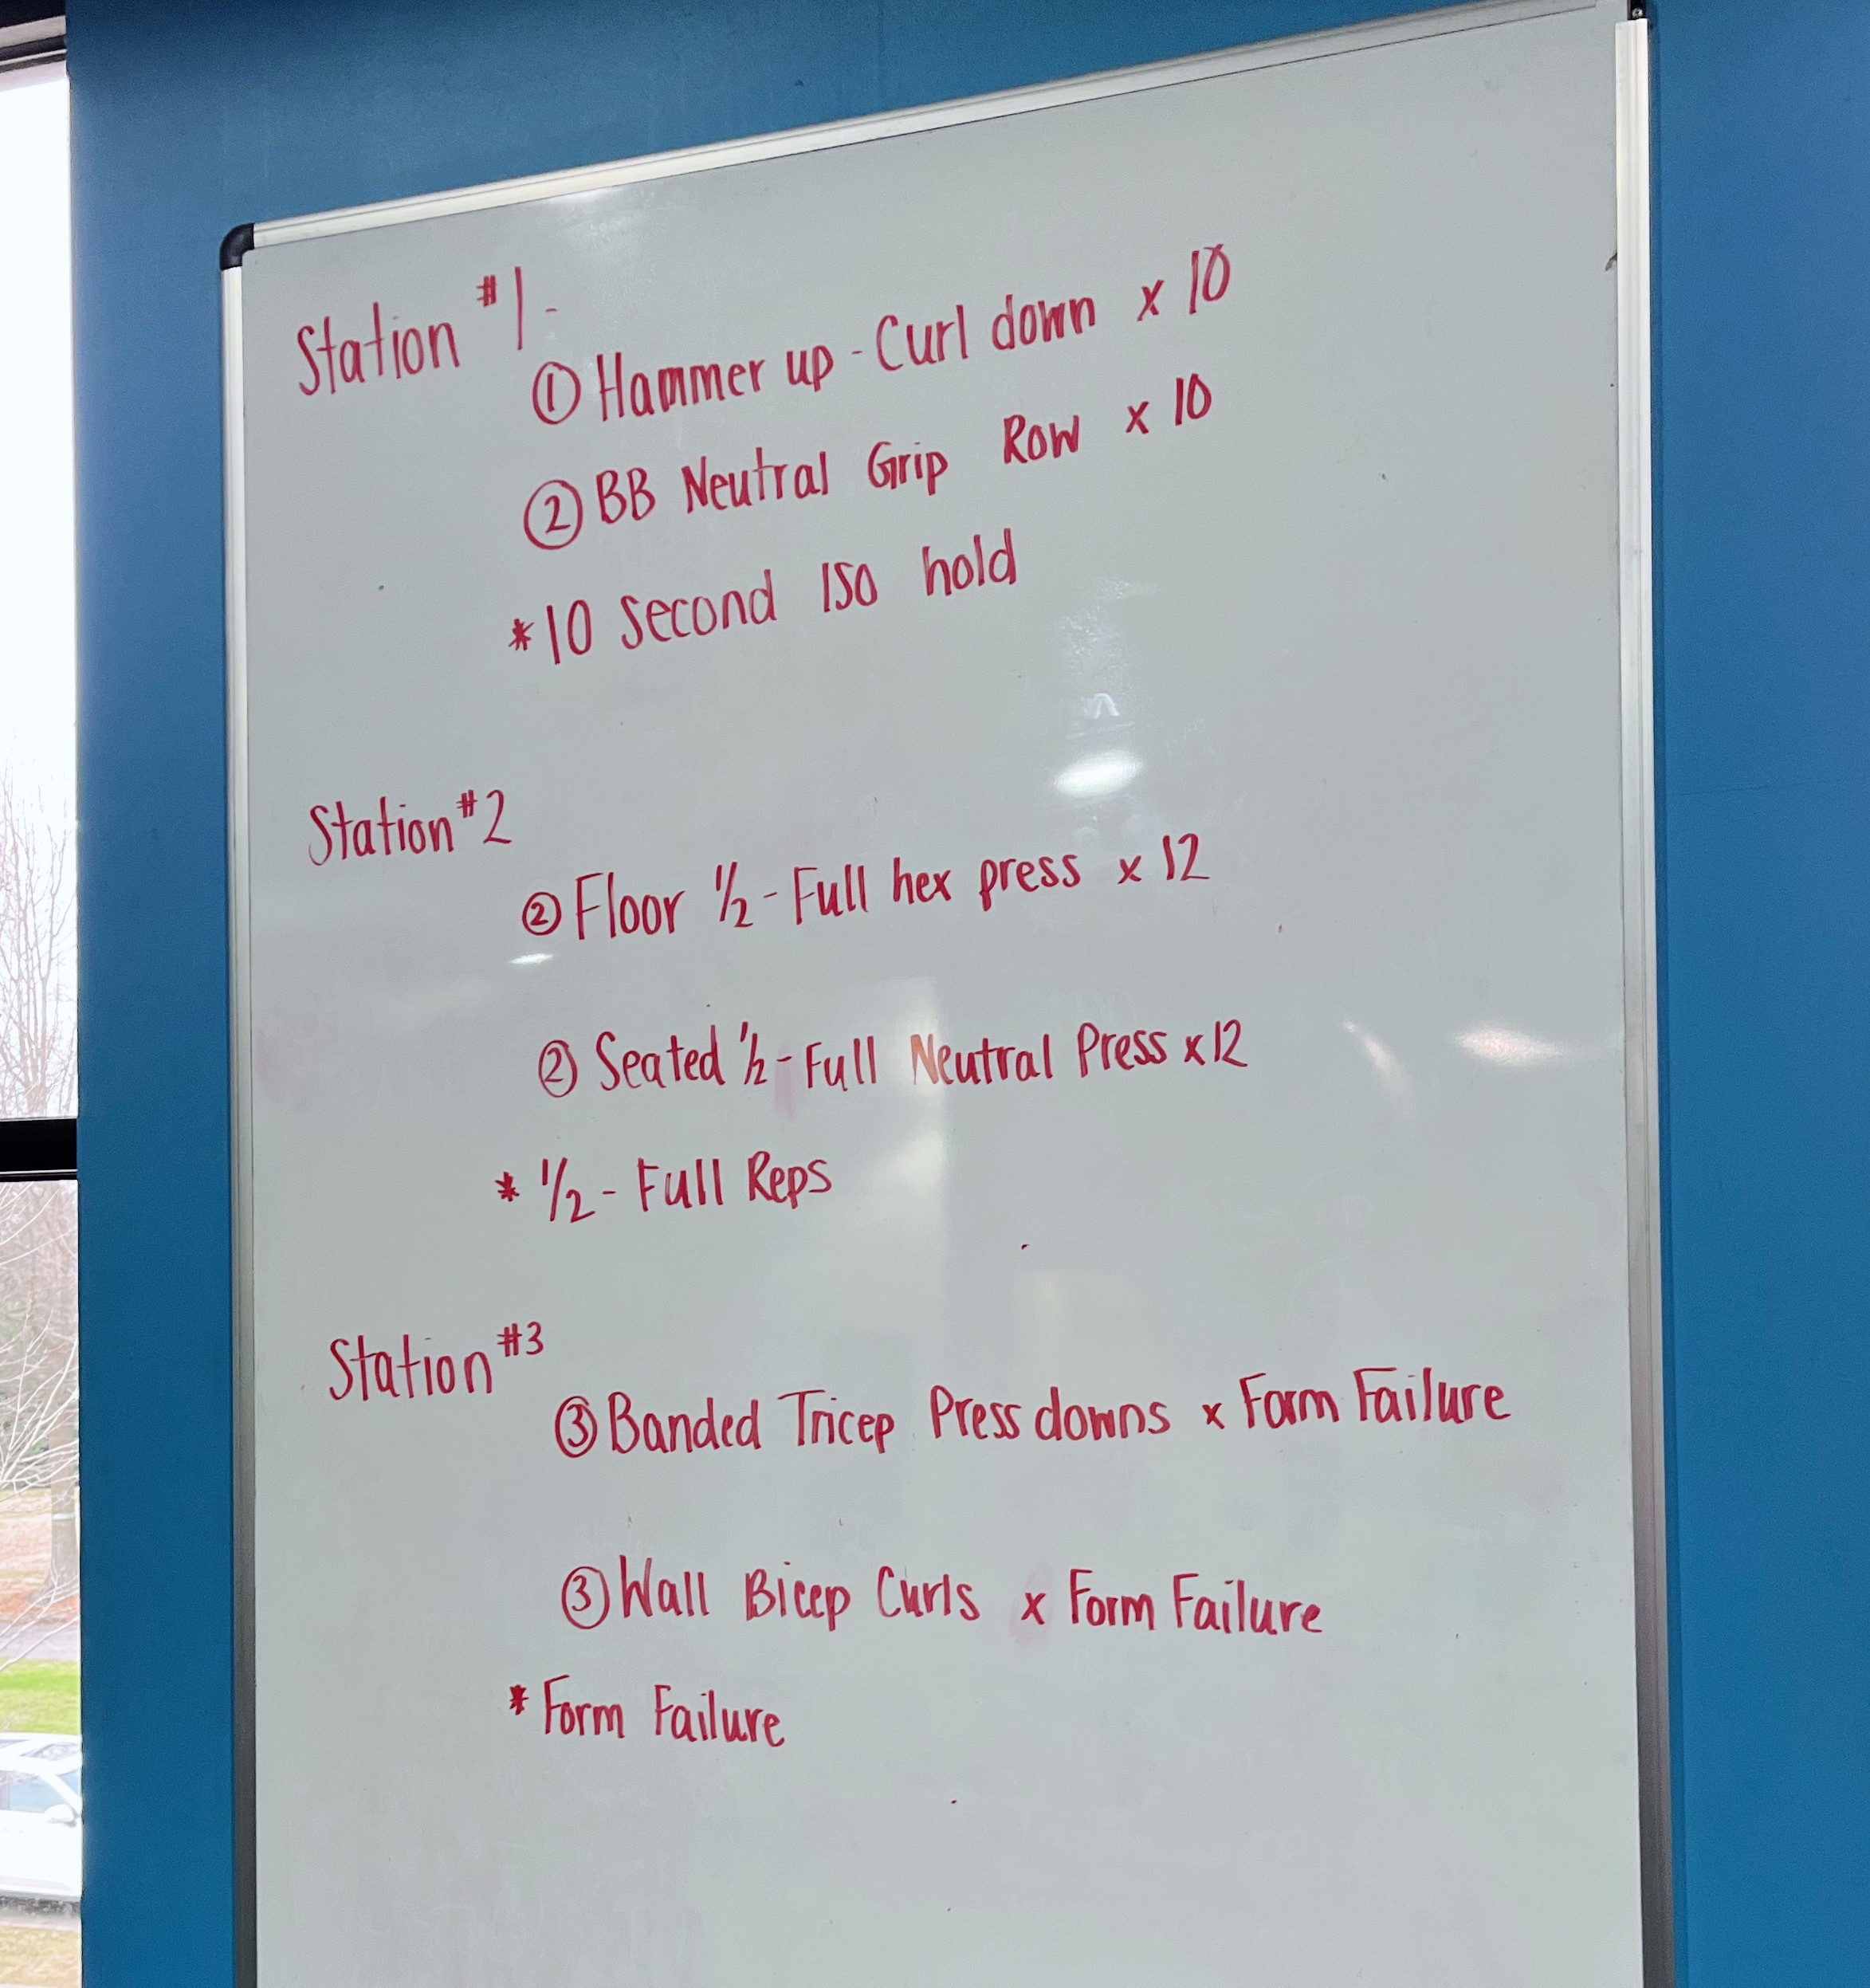 Station #1-
① Hammer up - Curl down x 10
② BB Neutral Grip Row x 10
*10 Second ISO hold
Station #2
② Floor 1/2 - Full hex press x 12
② Seated 1/2 - Full Neutral Press x 12
* 1/2 - Full Reps
Station #3
③ Banded Tricep Press downs x Form Failure
③ Wall Bicep Curls x Form Failure
* Form Failure